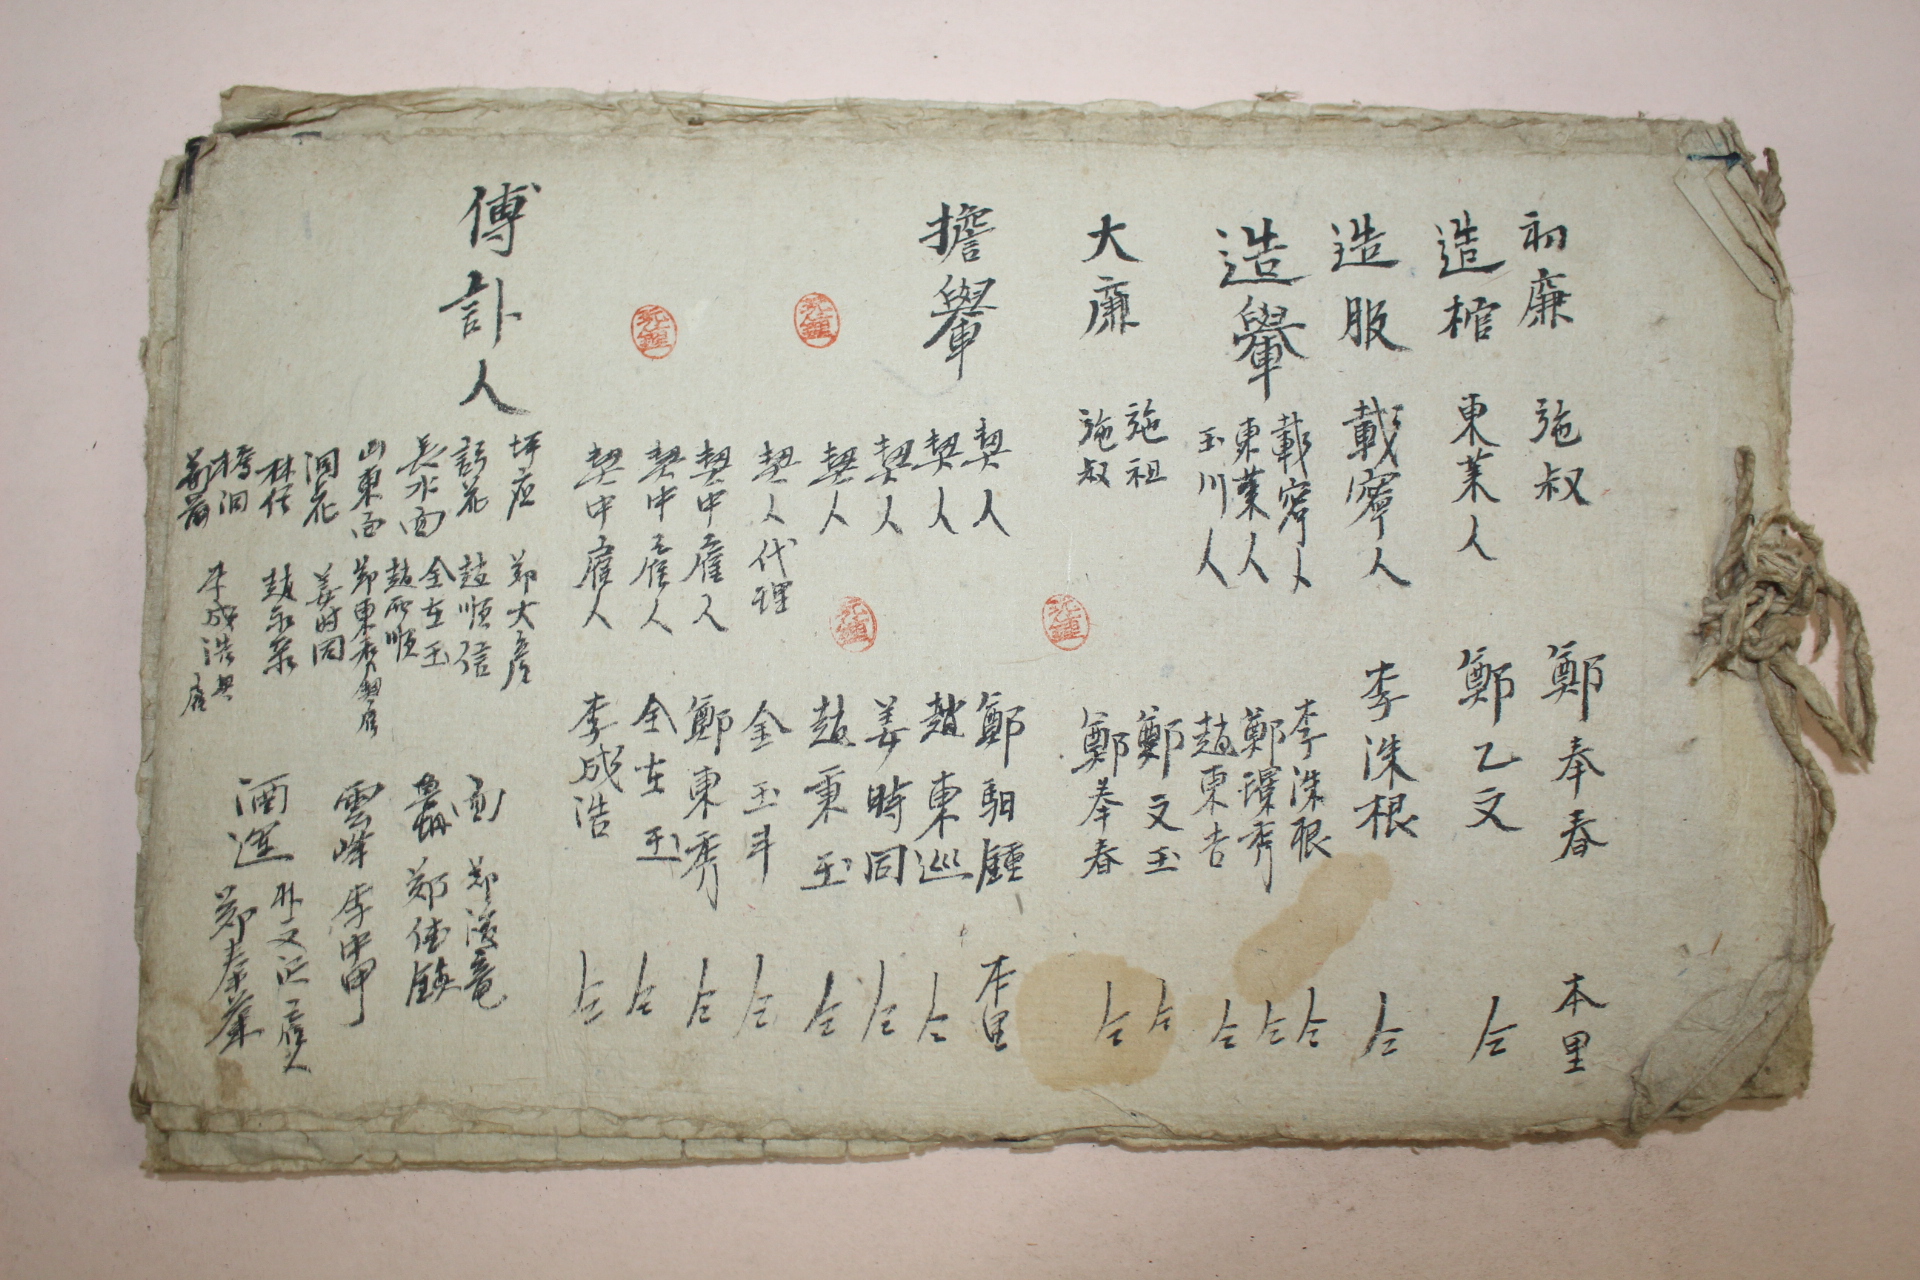 初廉 施叔 鄭奉春 本里
造棺 東業人 鄭乙文 仝
造服 載寧人 李洙根 仝
造轝 載寧人 李洙根 仝
東業人 鄭環秀 仝
玉川人 趙東吉 仝
大廉 施祖 鄭文玉 仝
施叔 鄭奉春 仝
擔轝 契人 鄭駔鍾 本里
契人 趙東巡 仝
契人 姜時同 仝
契人 趙秉玉 仝
契人代理 金玉斗 仝
契中雇人 鄭東秀 仝
契中雇人 全在玉 仝
契中雇人 李成浩 仝
傳訃人 坪在 鄭大彦
訪花 趙順信
長水面 全在玉
趙丙順
山東面 鄭東秀
洞花 姜時同
林侄
李成浩
鄭俊竜
鄭
雲峰 李中甲
酒進 朴文 雇人
鄭奉